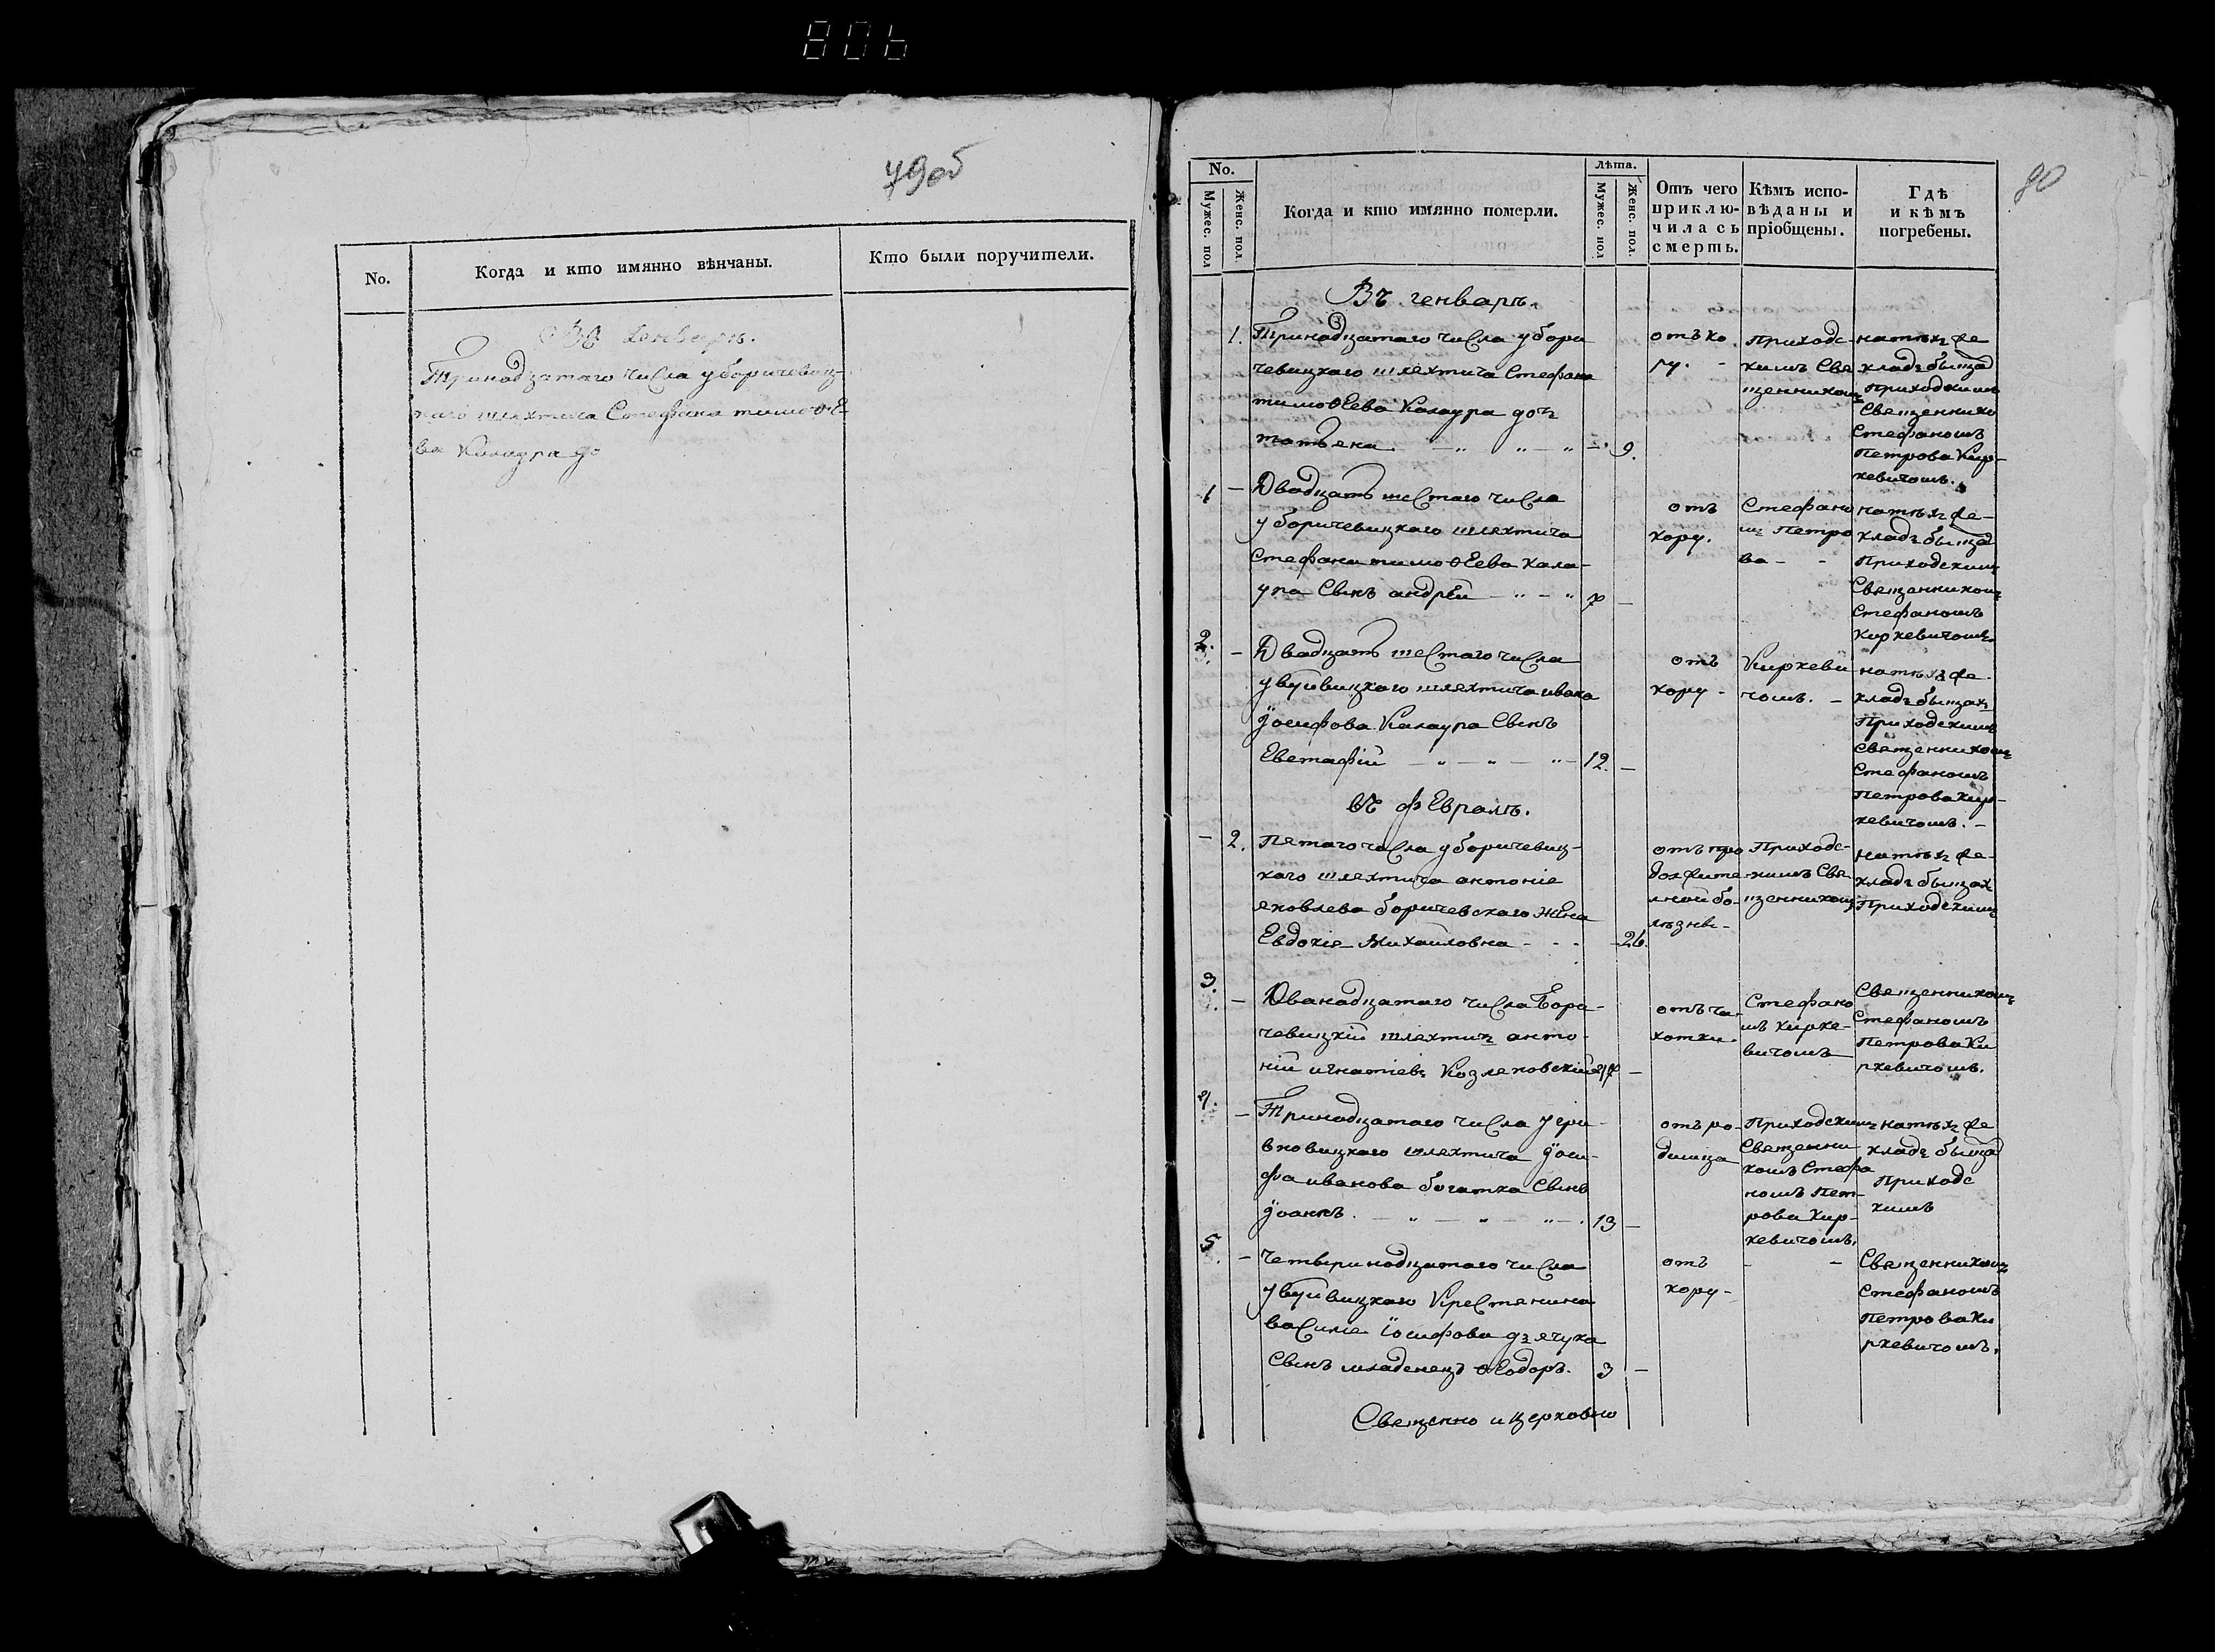 806
79об
No.
Когда и кто имянно вѣнчаны.
Кто были поручители.
Въ Генваръ.
Тринадзатаго числа уборичевиц-
каго шляхтича Стефана тимоѳѣ-
ва Калаура до
80
No.
Мужес. пол
Женс. пол.
Когда и кто имянно померли.
лѣта.
Мужес. пол
Женс. пол.
Отъ чего
приклю-
чилась
смерть.
Кѣмъ испо-
вѣданы и
пріобщены.
Гдѣ
и кѣмъ
погребены.
Въ генваръ.
1. Тринадцатаго числа убори
чевицкаго шляхтича Стефана
тимоѳЕева Калаура доч
татъяна 9.
отъ ко
ру.
Приходс-
кимъ Свя
щенником
Приходским
Священнико
Стефаномъ
Петрова Кир-
кевичомъ.
1 – Двадцатъ шестаго числа
уборичевицкаго шляхтича
Стефана тимоѳЕева Кала-
ура Сынъ андрѣй 7 –
отъ
кору.
Стефано
м Петро
ва - -
Приходским
Священником
Стефаномъ
Киркевичомъ.
2. – Двадцатъ шестаго числа
увуйвицкаго шляхтича ивана
Іосифова Калаура Сынъ
Евстафій 12. –
отъ
кору -
Киркеви
чомъ. –
Приходскимъ
Священником
Стефаномъ
Петрова Кир-
кевичомъ. –
въ фЕвралъ.
– 2. Пятаго числа уборичевиц-
каго шляхтича антонія
яковлева боричевскаго жЕна
Евдокія Михайловна - - - 26.
отъ про
должите
лной бо-
лѣзни -
Приходс-
кимъ Свя
щенником
Приходским
3. – Дванадцатаго числа Бори-
чевицкій шляхтич анто-
ній игнатіевъ Козляковскій 47 –
отъ ча-
хотки.
Стефано
мъ Кирке-
вичомъ
Священником
Стефаномъ
Петрова Ки
ркевичомъ.
4. – Тринадцатаго числа угри-
вковицкаго шляхтича Іоси-
фа иванова богатка Сынъ
Іоаннъ. 13 –
отъ ро-
димца
Приходским
Священни
комъ Стефа
номъ Пет-
рова Кир-
кевичомъ.
Приходс
кимъ
5. – Четыринадцатаго числа
увуйвицкаго Крестянина
василія Іосифова дзячука
Сынъ младенецъ ѳЕодоръ. 3 –
отъ
кору -
- -
Священником
Стефаномъ
Петрова Ки
ркевичомъ.
Священно и церковно